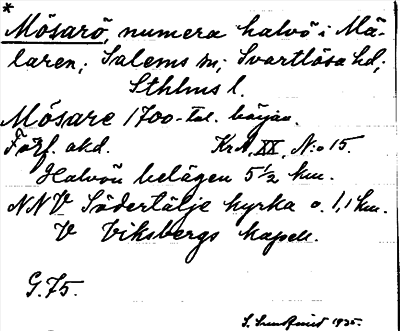 *
Mösarö, numera halvö i Mä-
laren; Salems sn; Svartlösa hd;
Sthlms l.
Mösare 1700-tal. början.
Förf. akd. Kr.A. XX, N:o 15.
Halvön belägen 5½ km.
NNV Södertälje kyrka o. 1,1 km.
V Viksbergs kapell.
G.75.
S. 1935.